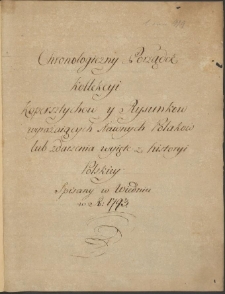 Chronologiczny Porządek
Kollekcyi
Kopersztychow y Rysunkow
wyrażaiących sławnych Polakow
lub zdarzenia wzięte z historyi
Polskiey
Spisany w Wiedniu
w R. 1793